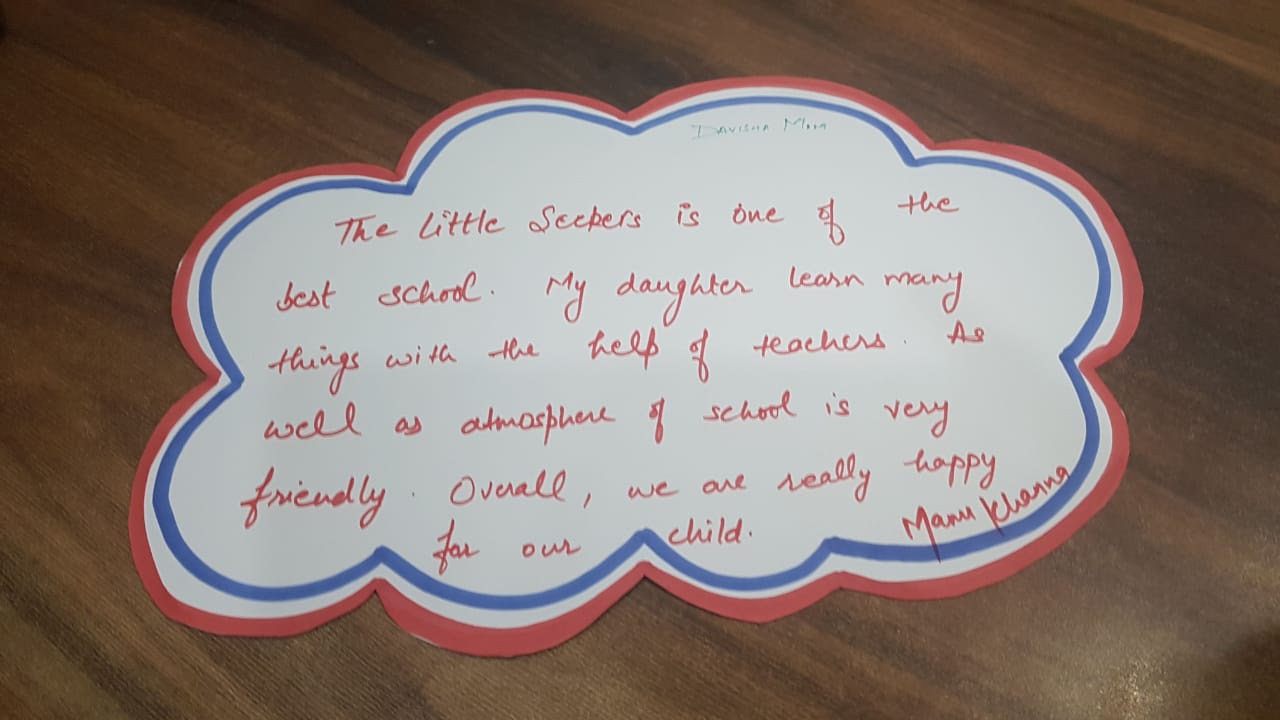 Davisha Mom
The Little Seekers is one of the
best school. My daughter learn many
things with the help of teachers. As
well as atmosphere of school is very
friendly. Overall, we are really happy
for our child.
Manu Khanna